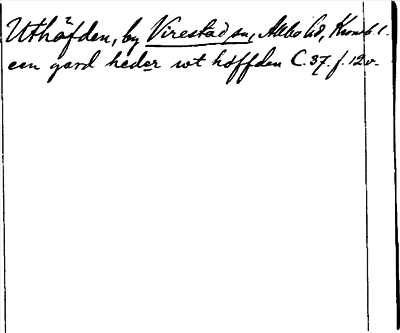 Uthöfden, by Virestad sn, Allbo hd, Kronb l.
een gard heder wt höffden C. 37. f. 12 v.